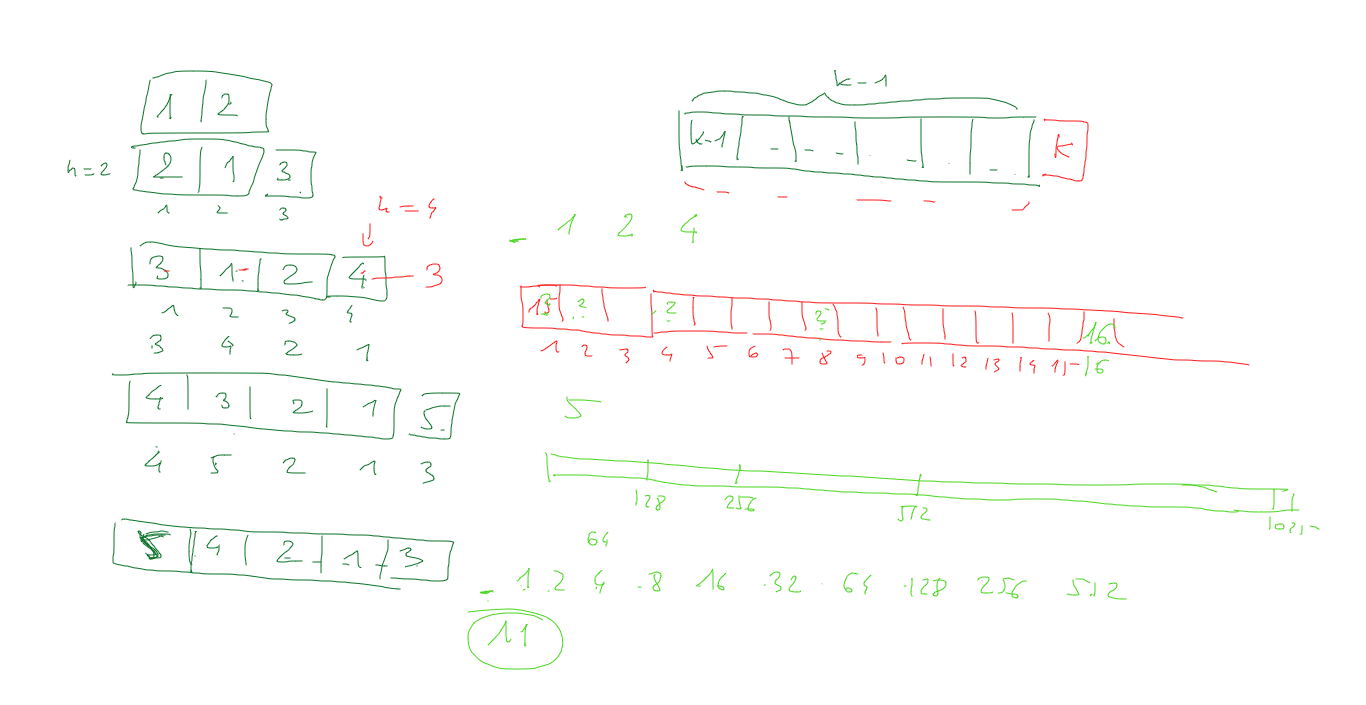 1 2
h=2 2 1 3
1 2 3
h=4
3 1 2 4 — 3
1 2 3 4
3 4 2 1
4 3 2 1 5
4 5 2 1 3
5 4 2 1 3
k-1
k-1 k
- 1 2 4
2 2 16
1 2 3 4 5 6 7 8 9 10 11 12 13 14 15 16
5
128 256 512 1025
64
- 1 2 4 8 16 32 64 128 256 512
11